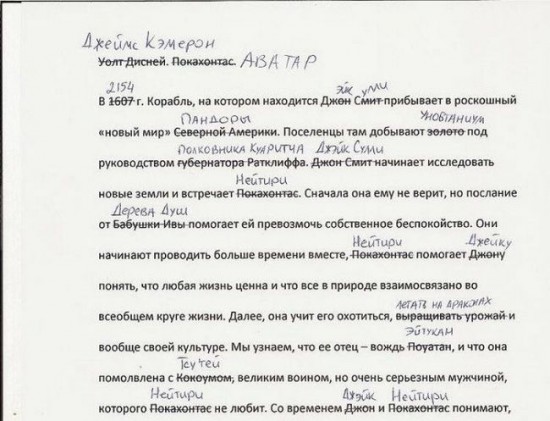 Джеймс Кэмерон
Уолт Дисней. Покахонтас. АВАТАР
2154 эйк улли
В 1607 г. Корабль, на котором находится Джон Смит прибывает в роскошный
Пандоры Унобтаниум
«новый мир» Северной Америки. Поселенцы там добывают золото под
полковника Куаритча Джэйк Сулли
руководством губернатора Ратклиффа. Джон Смит начинает исследовать
Нейтири
новые земли и встречает Покахонтас. Сначала она ему не верит, но послание
Дерева Душ
от Бабушки Ивы помогает ей превозмочь собственное беспокойство. Они
Нейтири Джейку
начинают проводить больше времени вместе, Покахонтас помогает Джону
понять, что любая жизнь ценна и что все в природе взаимосвязано во
летать на драконах
всеобщем круге жизни. Далее, она учит его охотиться, выращивать урожай и
Эйтукан
вообще своей культуре. Мы узнаем, что ее отец – вождь Поуатан, и что она
Тсу'тей
помолвлена с Кокоумом, великим воином, но очень серьезным мужчиной,
Нейтири Джэйк Нейтири
которого Покахонтас не любит. Со временем Джон и Покахонтас понимают,